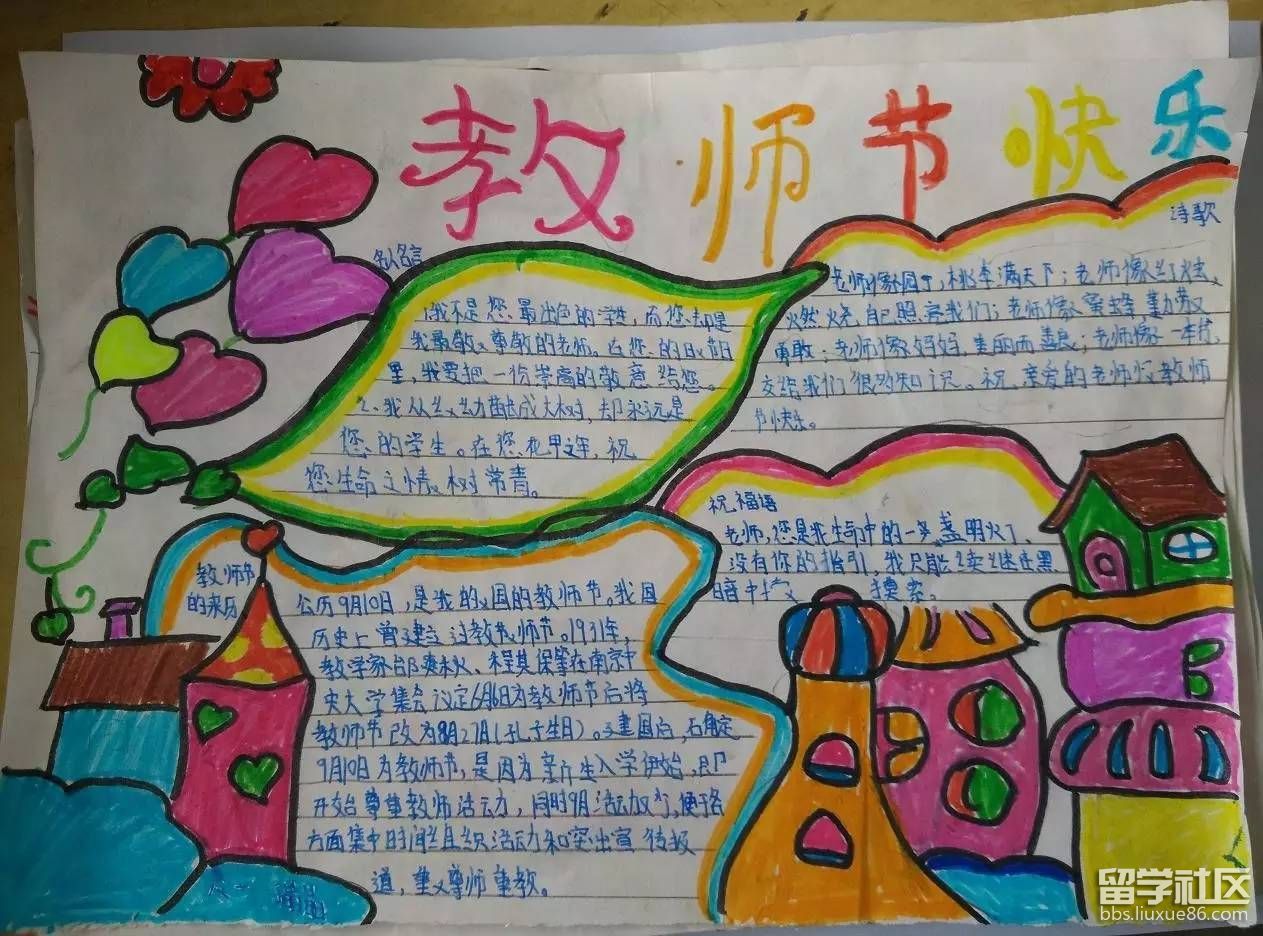 教师节快乐
名人名言
1、我不是您最出色的学生，而您却是
我最敬尊敬的老师。在您的日节日
里，我要把一份崇高的敬意给您。
2、我从幼苗长成大树，却永远是
您的学生。在您花甲之年，祝
您生命之情树常青。
诗歌
老师像园丁，桃李满天下；老师像红烛，
燃烧自己照亮我们；老师像蜜蜂，勤劳
勇敢；老师像妈妈，美丽而善良；老师像一本书，
交给我们很多知识。祝亲爱的老师们教师
节快乐。
祝福语
老师，您是我生命中的一盏明灯
没有你的指引，我只能继续在黑
暗中摸索。
教师节
的来历
公历9月10日，是我的国的教师节。我国
历史上曾建立过教节师节。1931年，
教学家邰爽秋、程其保等在南京中
央大学集会议定6月6日为教师节后将
教师节改为8月27日（孔子生日）。建国后，确定
9月10日为教师节，是因为新生入学伊始，即
开始尊重教师活动，同时9月活动较少，便于各
方面集中时间组织活动和突出宣传报
道，尊师重教。
留学社区
bbs.liuxue86.com